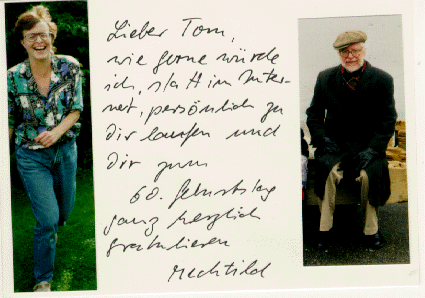 Lieber Tom,
wie gerne würde
ich, statt im Inter-
net, persönlich zu
dir laufen und
dir zum
60. Geburtstag
ganz herzlich
gratulieren
Mechtild